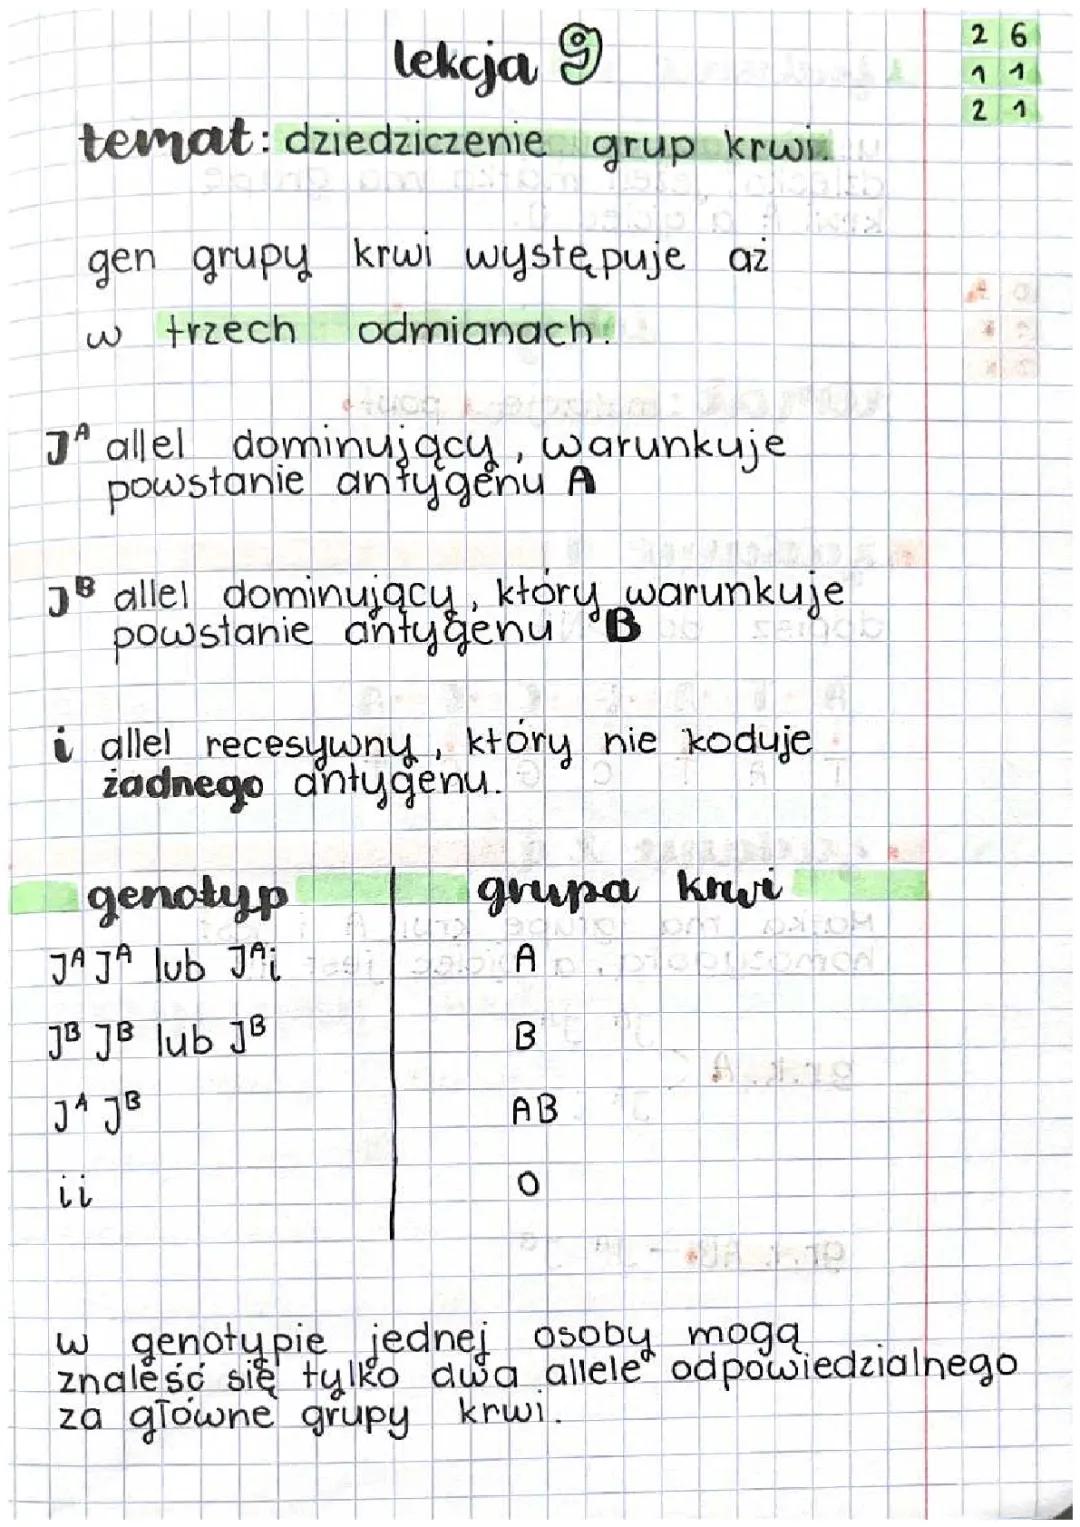 lekcja 9
2 6
1 1
2 1
temat: dziedziczenie grup krwi.
gen grupy krwi występuje aż
w trzech odmianach!
J^A allel dominujący, warunkuje
powstanie antygenu A
J^B allel dominujący, który warunkuje
powstanie antygenu B
i allel recesywny, który nie koduje
żadnego antygenu.
genotyp grupa krwi
J^A J^A lub J^A i A
J^B J^B lub J^B B
J^A J^B AB
ii 0
w genotypie jednej osoby mogą
znaleść się tylko dwa allele odpowiedzialnego
za główne grupy krwi.